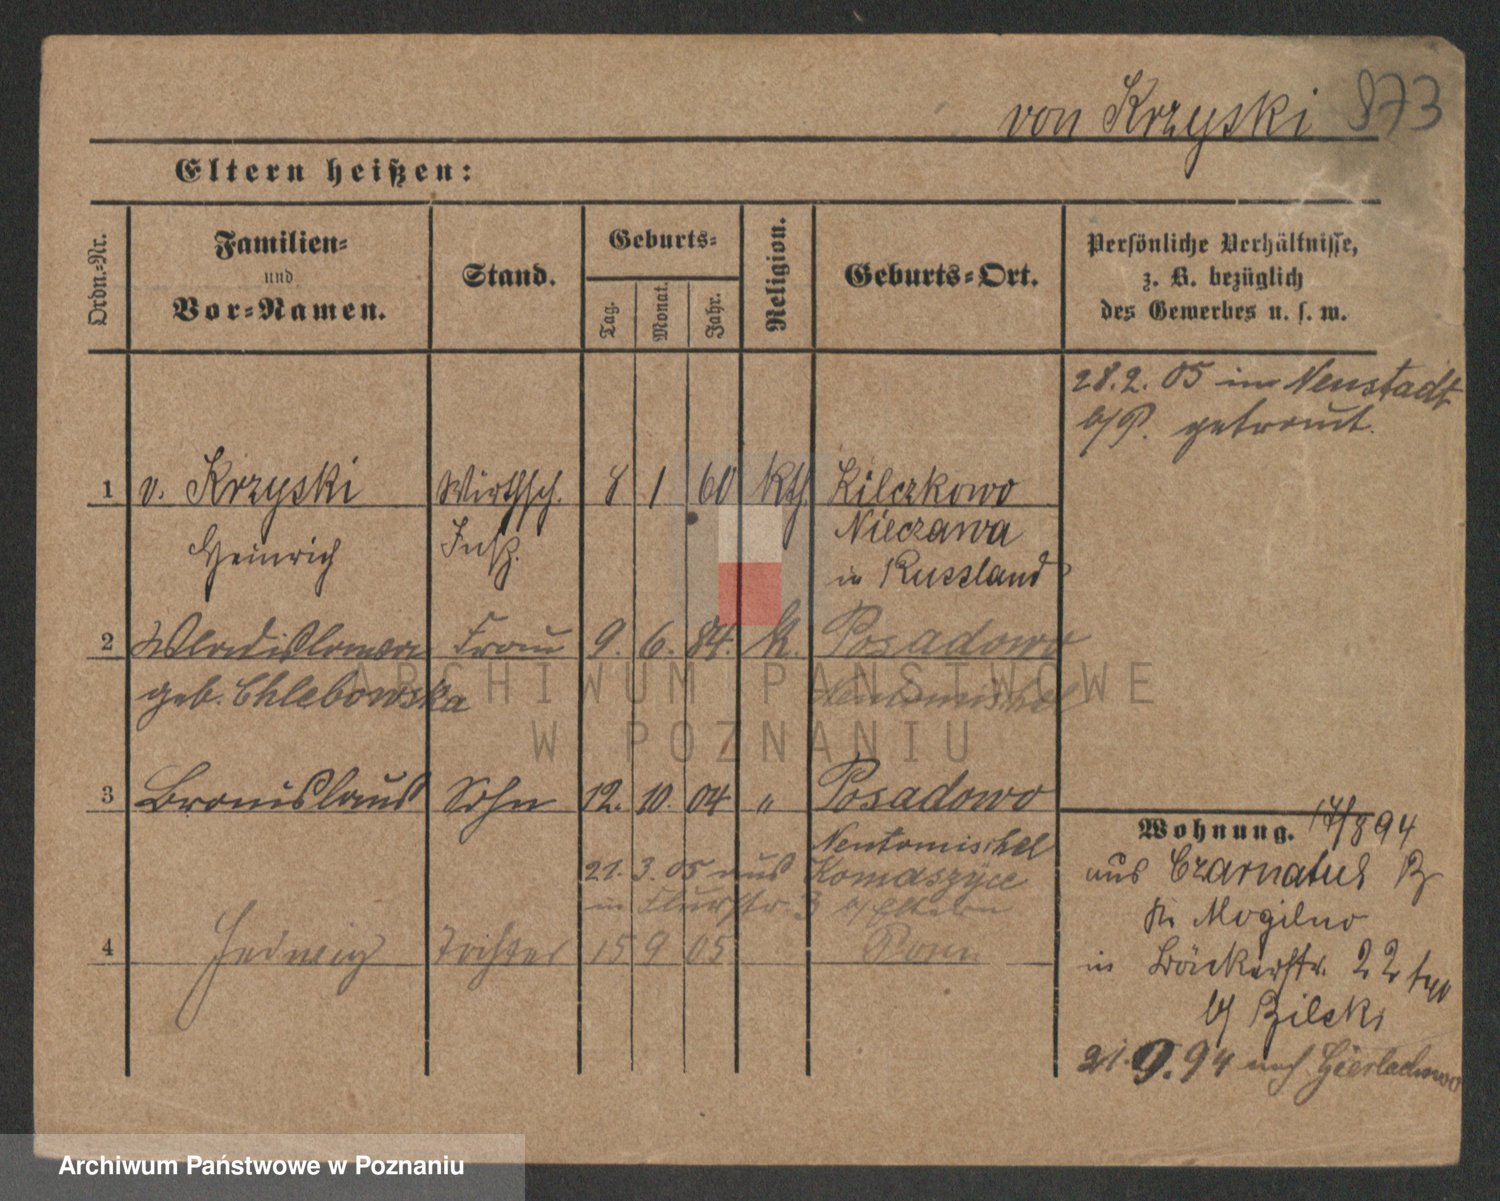 von Krzyski 873
Eltern heißen:
Ordn.-Nr.
Familien-
und
Vor-Namen.
Stand.
Geburts-
Tag.
Monat.
Jahr.
Religion.
Geburts-Ort.
Persönliche Verhältnisse,
z. B. bezüglich
des Gewerbes u. s. w.
28.2.05 in Neustadt
b/P. getraut.
1 v. Krzyski Wirthsch. 8 1 60 kth Kilczkowo
Heinrich Insp. Nieczawa
in Russland
2 Wladislawa Frau 9. 6. 84. k. Posadowo
geb. Chlebowska Neutomischel
3 Bronislaus Sohn 12. 10. 04 " Posadowo
Neutomischel
21.3.05 aus Komaszyce
in Flurstr. 3 b/Eltern
4 Hedwig Tochter 15 9 05 Posen
Wohnung. 17/8 94
aus Czarnatul
Kr. Mogilno
in Bäckerstr. 22
b/ Bilski
21.9.94 nach
ARCHIWUM PAŃSTWOWE
W POZNANIU
Archiwum Państwowe w Poznaniu